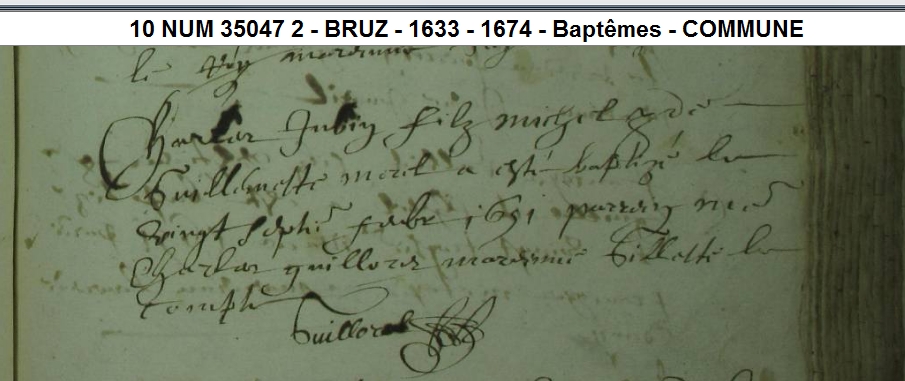 10 NUM 35047 2 - BRUZ - 1633 - 1674 - Baptêmes - COMMUNE
le
Charles Jubin filz michel et de
Guillemette morel a esté baptizé le
vingt septi febr 1651 parrain
Charles guillorel marenne Gillette le
compte
Guillorel